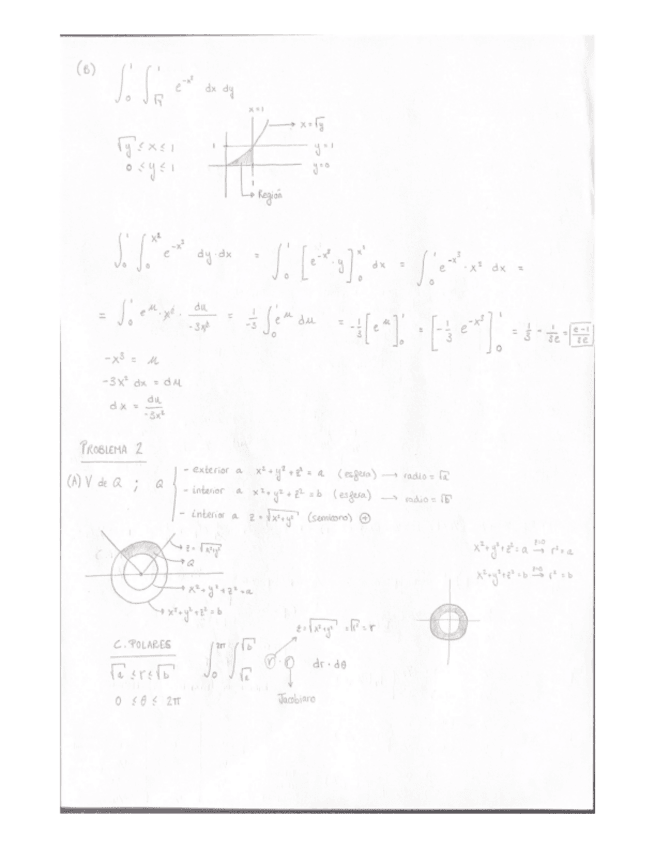 (B) ∫₀¹ ∫_√y¹ e^(-x³) dx dy
√y ≤ x ≤ 1
0 ≤ y ≤ 1
x=1
x=√y
1
y=1
y=0
1
Región
∫₀¹ ∫₀^(x²) e^(-x³) dy·dx = ∫₀¹ [e^(-x³)·y]₀^(x²) dx = ∫₀¹ e^(-x³)·x² dx =
= ∫₀¹ e^μ·x²·du/-3x² = 1/-3 ∫₀¹ e^μ dμ = -1/3 [e^μ]₀¹ = [-1/3 e^(-x³)]₀¹ = 1/3 - 1/3e = e-1/3e
-x³ = μ
-3x² dx = dμ
dx = du/-3x²
PROBLEMA 2
(A) V de Q ; Q
- exterior a x²+y²+z² = a (esfera) → radio=√a
- interior a x²+y²+z² = b (esfera) → radio=√b
- interior a z=√x²+y² (semicono) ⊕
z=√x²+y²
Q
x²+y²+z²=a
x²+y²+z²=b
x²+y²+z²=a →(z=0) r²=a
x²+y²+z²=b →(z=0) r²=b
C. POLARES
√a ≤ r ≤ √b
0 ≤ θ ≤ 2π
z=√x²+y² = √r² = r
∫₀^(2π) ∫_√a^√b r · r dr·dθ
Jacobiano